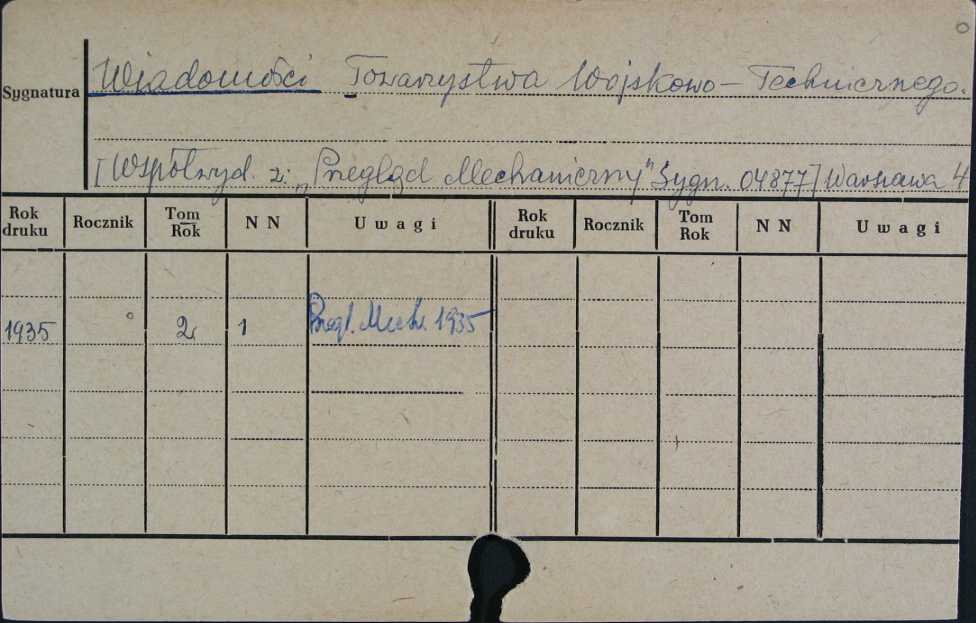 Wiadomości Towarzystwa Wojskowo-Technicznego.
Sygnatura
[Współwyd. z: „Przegląd Mechaniczny" Sygn. 04877] Warszawa 4
Rok druku Rocznik Tom Rok N N Uwagi Rok druku Rocznik Tom Rok N N Uwagi
1935 2 1 Przegl. Mech. 1935